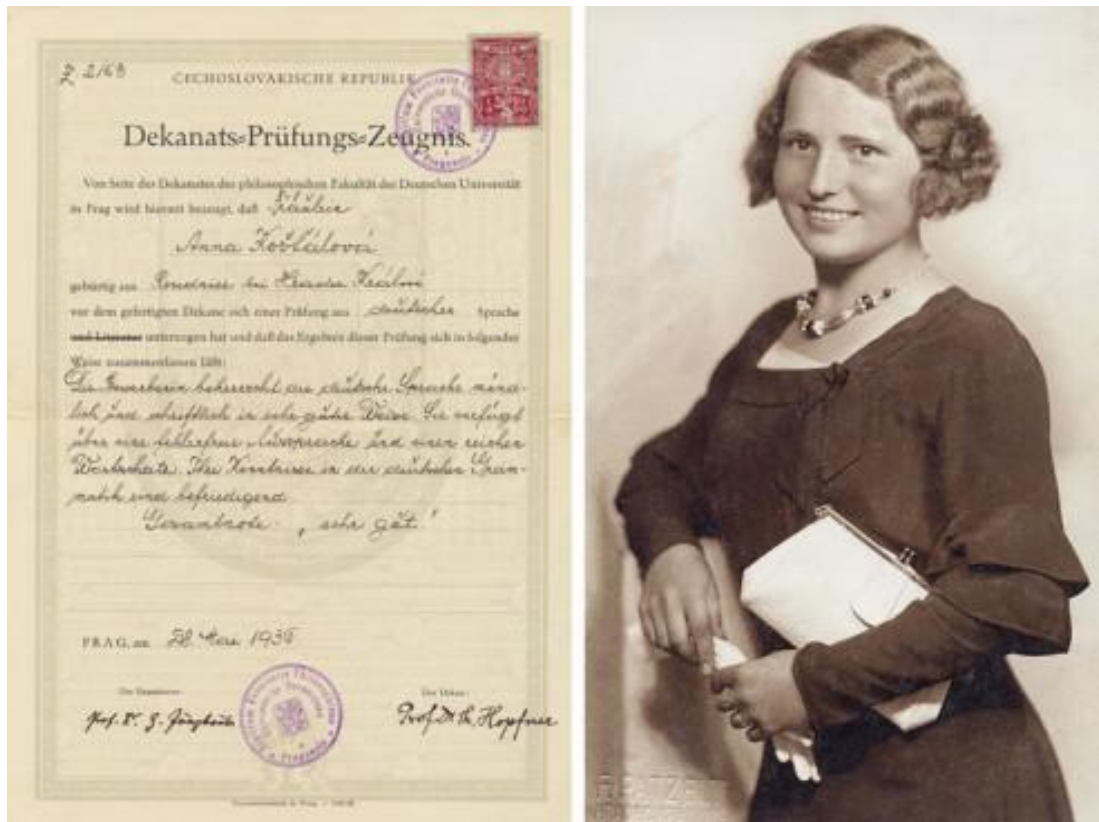 Z 2163
ČECHOSLOVAKISCHE REPUBLIK
Dekanats-Prüfungs-Zeugnis.
Von Seite des Dekanates der philosophischen Fakultät der Deutschen Universität
in Prag wird hiermit bezeugt, daß Fräulein
Anna Košťálová
gebürtig aus bei Hradec Králové
vor dem gefertigten Dekane sich einer Prüfung aus deutscher Sprache
und Literatur unterzogen hat und daß das Ergebnis dieser Prüfung sich in folgender
Weise zusammenfassen läßt:
Die Bewerberin beherrscht die deutsche Sprache münd-
lich und schriftlich in sehr guter Weise. Sie verfügt
über eine fehlerfreie Aussprache und einen reichen
Wortschatz. Ihre Kenntnisse in der deutschen Gram-
matik sind befriedigend.
Gesamtnote: „sehr gut."
PRAG, am 28. 193
Der Examinator:
Der Dekan:
Prof. Dr.
Prof. Dr. Hopfner